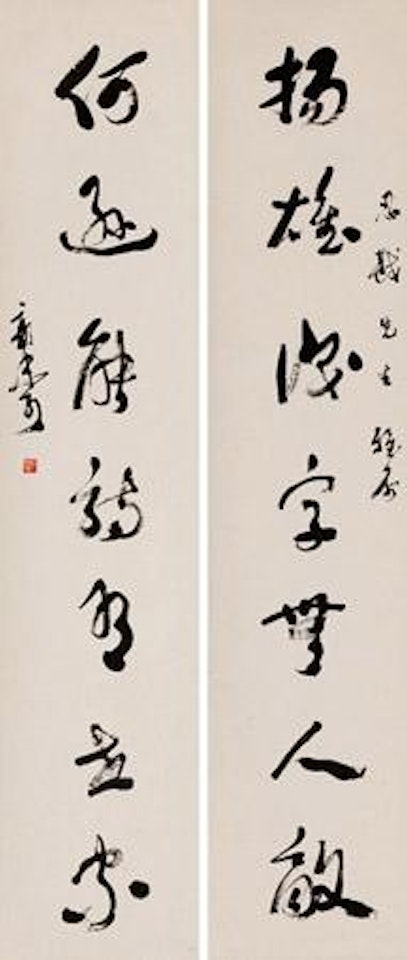 先生雅属
揚雄識字無人敵
何遜能詩有世家